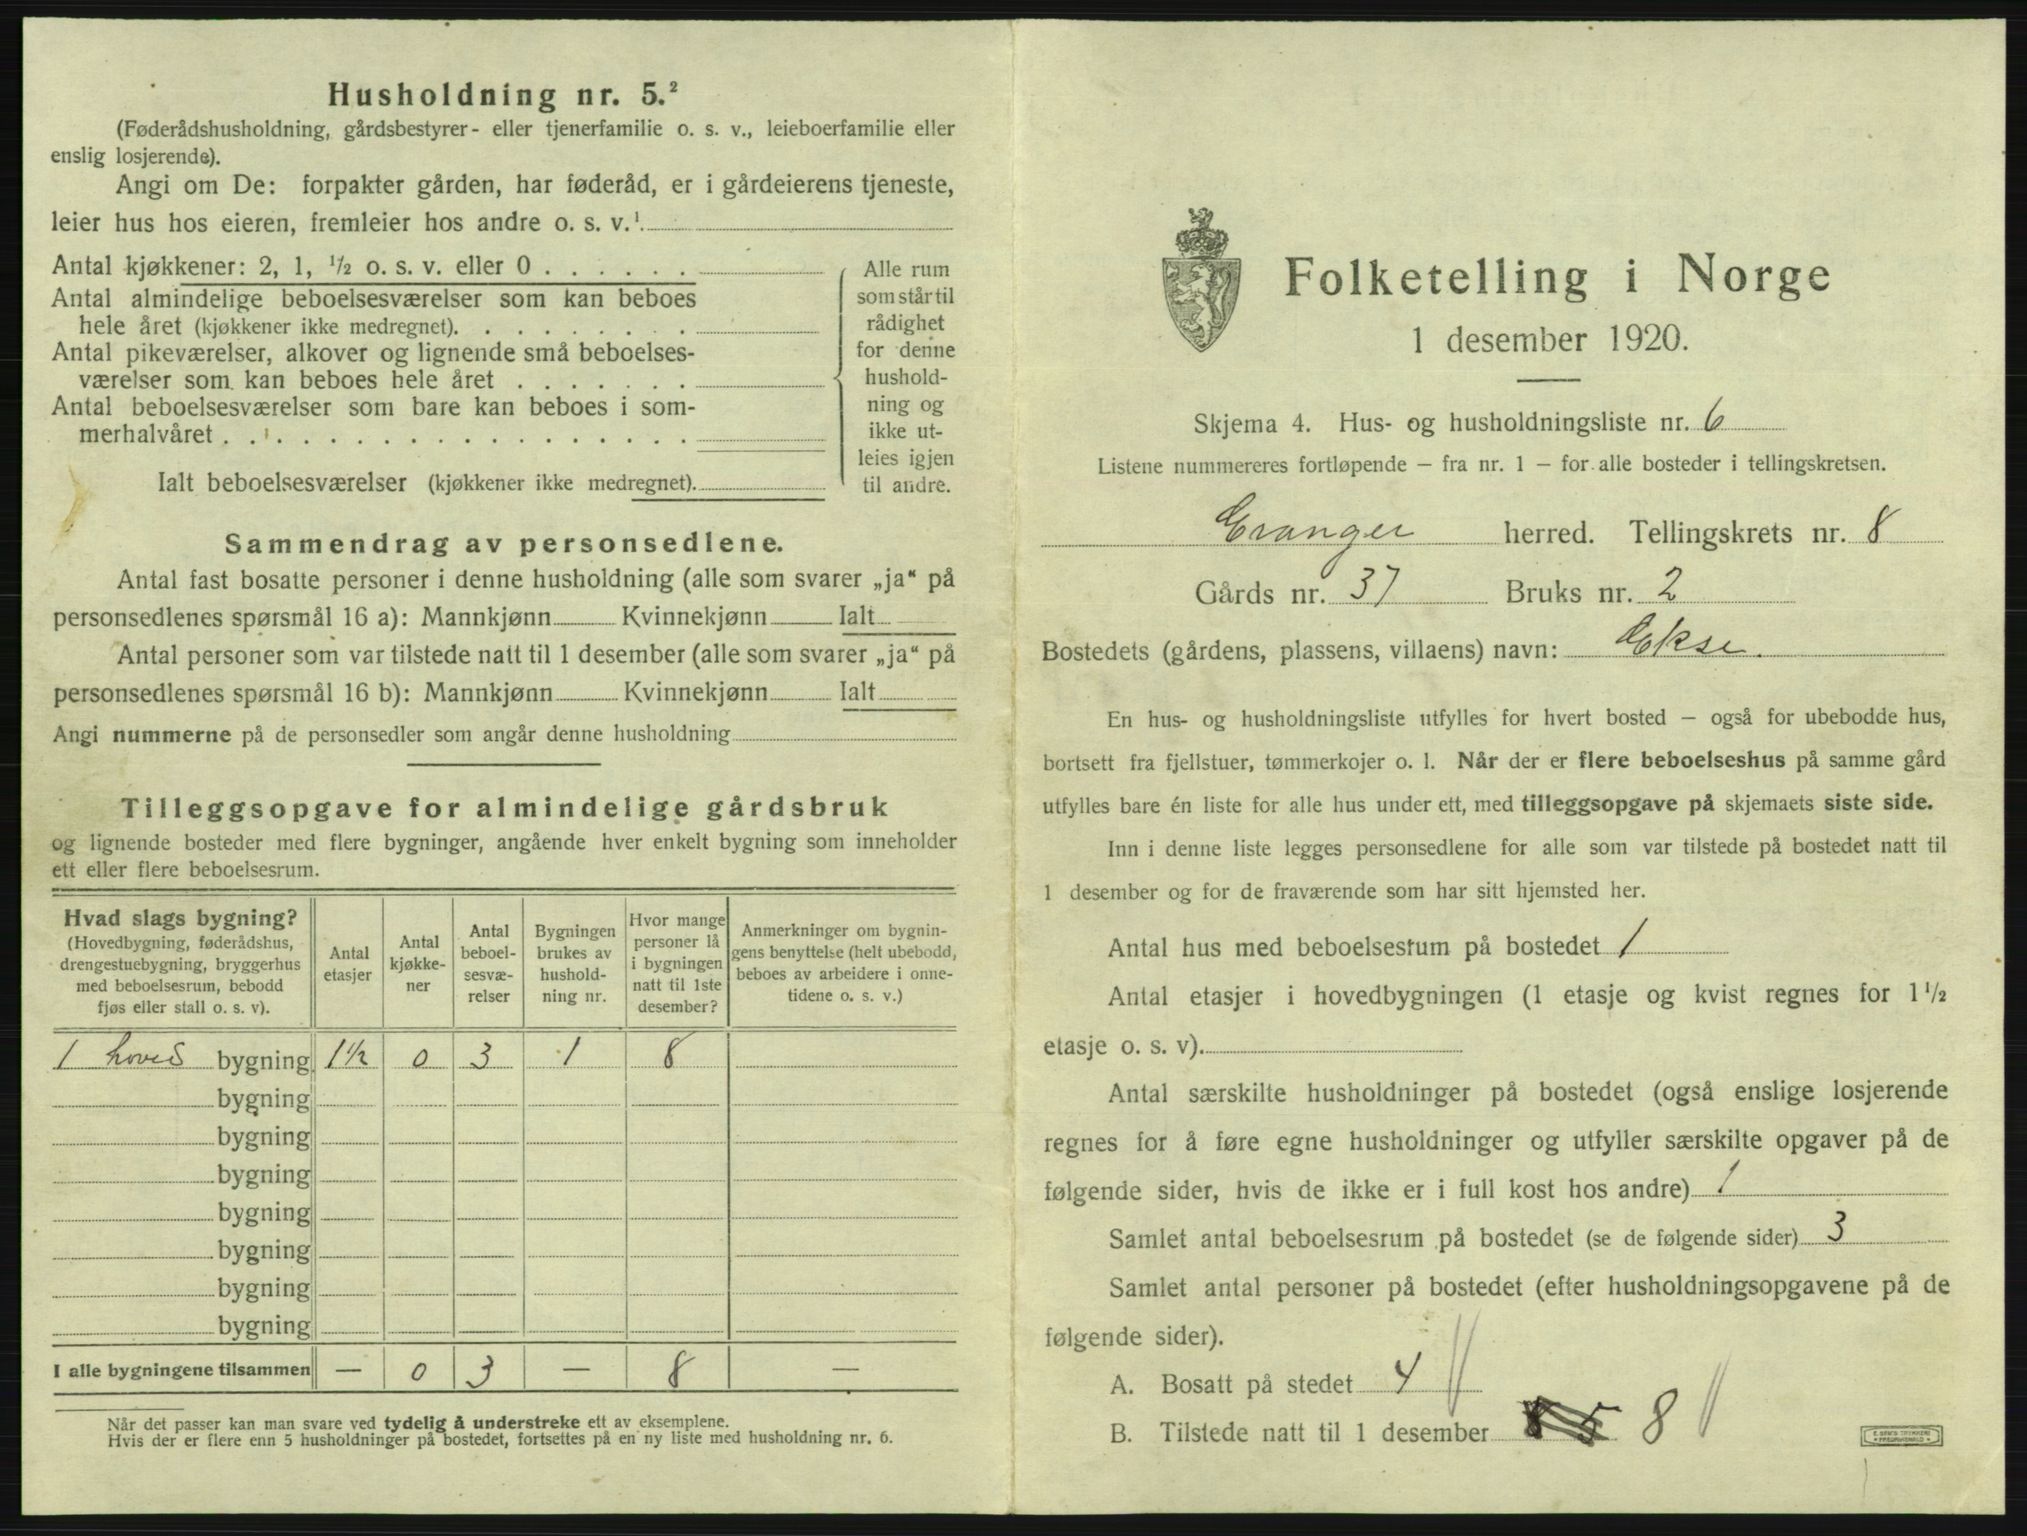 Husholdning nr. 5.²
(Føderådshusholdning, gårdsbestyrer- eller tjenerfamilie o. s. v., leieboerfamilie eller
enslig losjerende).
Angi om De: forpakter gården, har føderåd, er i gårdeierens tjeneste,
leier hus hos eieren, fremleier hos andre o. s. v.¹
Antal kjøkkener: 2, 1, ½ o. s. v. eller 0 . . . . . .
Antal almindelige beboelsesværelser som kan beboes
hele året (kjøkkener ikke medregnet). . . . . . . . .
Antal pikeværelser, alkover og lignende små beboelses-
værelser som kan beboes hele året . . . . . . .
Antal beboelsesværelser som bare kan beboes i som-
merhalvåret . . . . . . . . . . . . . . . . . .
Ialt beboelsesværelser (kjøkkener ikke medregnet).
Alle rum
som står til
rådighet
for denne
hushold-
ning og
ikke ut-
leies igjen
til andre.
Sammendrag av personsedlene.
Antal fast bosatte personer i denne husholdning (alle som svarer „ja“ på
personsedlenes spørsmål 16 a): Mannkjønn Kvinnekjønn Ialt
Antal personer som var tilstede natt til 1 desember (alle som svarer „ja“ på
personsedlenes spørsmål 16 b): Mannkjønn Kvinnekjønn Ialt
Angi nummerne på de personsedler som angår denne husholdning
Tilleggsopgave for almindelige gårdsbruk
og lignende bosteder med flere bygninger, angående hver enkelt bygning som inneholder
ett eller flere beboelsesrum.
Hvad slags bygning?
(Hovedbygning, føderådshus,
drengestuebygning, bryggerhus
med beboelsesrum, bebodd
fjøs eller stall o. s. v).
Antal
etasjer
Antal
kjøkke-
ner
Antal
beboel-
sesvæ-
relser
Bygningen
brukes av
hushold-
ning nr.
Hvor mange
personer lå
i bygningen
natt til 1ste
desember?
Anmerkninger om bygnin-
gens benyttelse (helt ubebodd,
beboes av arbeidere i onne-
tidene o. s. v.)
1 hoved bygning 1½ 0 3 1 8
bygning
bygning
bygning
bygning
bygning
bygning
bygning
I alle bygningene tilsammen — 0 3 — 8 —
Når det passer kan man svare ved tydelig å understreke ett av eksemplene.
Hvis der er flere enn 5 husholdninger på bostedet, fortsettes på en ny liste med husholdning nr. 6.
Folketelling i Norge
1 desember 1920.
Skjema 4. Hus- og husholdningsliste nr. 6
Listene nummereres fortløpende – fra nr. 1 – for alle bosteder i tellingskretsen.
Evanger herred. Tellingskrets nr. 8
Gårds nr. 37 Bruks nr. 2
Bostedets (gårdens, plassens, villaens) navn: Ekse.
En hus- og husholdningsliste utfylles for hvert bosted – også for ubebodde hus,
bortsett fra fjellstuer, tømmerkojer o. l. Når der er flere beboelseshus på samme gård
utfylles bare én liste for alle hus under ett, med tilleggsopgave på skjemaets siste side.
Inn i denne liste legges personsedlene for alle som var tilstede på bostedet natt til
1 desember og for de fraværende som har sitt hjemsted her.
Antal hus med beboelsesrum på bostedet 1
Antal etasjer i hovedbygningen (1 etasje og kvist regnes for 1½
etasje o. s. v).
Antal særskilte husholdninger på bostedet (også enslige losjerende
regnes for å føre egne husholdninger og utfyller særskilte opgaver på de
følgende sider, hvis de ikke er i full kost hos andre) 1
Samlet antal beboelsesrum på bostedet (se de følgende sider) 3
Samlet antal personer på bostedet (efter husholdningsopgavene på de
følgende sider).
A. Bosatt på stedet 4
B. Tilstede natt til 1 desember 8